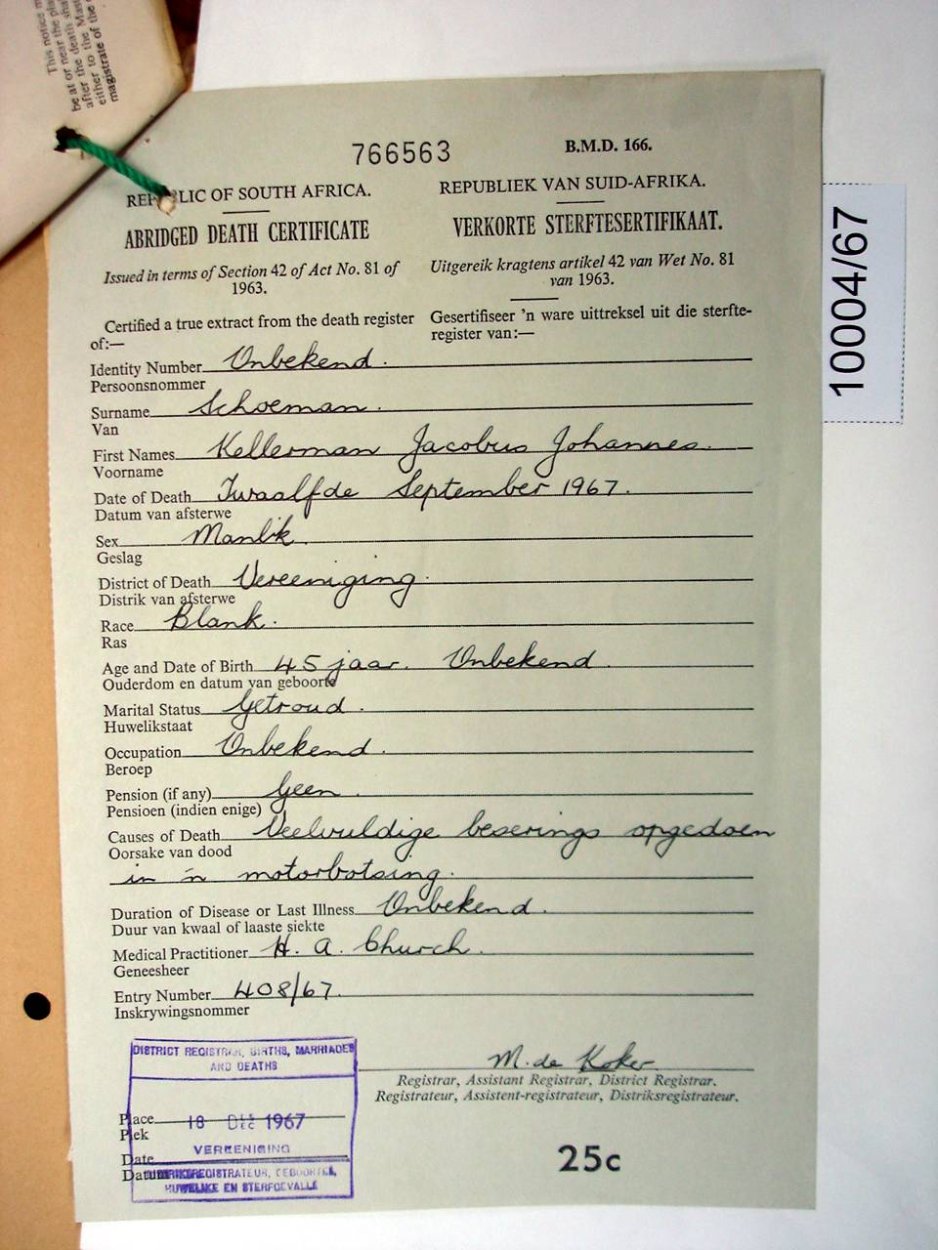 This notice m
be at or near the pla
after the death sha
either to the Mas
magistrate of the
766563
B.M.D. 166.
LIC OF SOUTH AFRICA.
REPUBLIEK VAN SUID-AFRIKA.
ABRIDGED DEATH CERTIFICATE
VERKORTE STERFTESERTIFIKAAT.
Issued in terms of Section 42 of Act No. 81 of
1963.
Uitgereik kragtens artikel 42 van Wet No. 81
van 1963.
Certified a true extract from the death register
of:—
Gesertifiseer 'n ware uittreksel uit die sterfte-
register van:—
Identity Number Onbekend.
Persoonsnommer
Surname Schoeman.
Van
First Names Kellerman Jacobus Johannes.
Voorname
Date of Death Twaalfde September 1967.
Datum van afsterwe
Sex Manlik.
Geslag
District of Death Vereeniging.
Distrik van afsterwe
Race Blank.
Ras
Age and Date of Birth 45 jaar. Onbekend.
Ouderdom en datum van geboorte
Marital Status Getroud.
Huwelikstaat
Occupation Onbekend.
Beroep
Pension (if any) Geen.
Pensioen (indien enige)
Causes of Death Veelvuldige beserings opgedoen
Oorsake van dood
in 'n motorbotsing.
Duration of Disease or Last Illness Onbekend.
Duur van kwaal of laaste siekte
Medical Practitioner H. A. Church.
Geneesheer
Entry Number 408/67.
Inskrywingsnommer
M. de Koker
Registrar, Assistant Registrar, District Registrar.
Registrateur, Assistent-registrateur, Distriksregistrateur.
DISTRICT REGISTRAR, BIRTHS, MARRIAGES
AND DEATHS
Place 18 DEC 1967
Plek
VEREENIGING
Date
Datum
DISTRIKSREGISTRATEUR, GEBOORTES,
HUWELIKE EN STERFGEVALLE
25c
10004/67